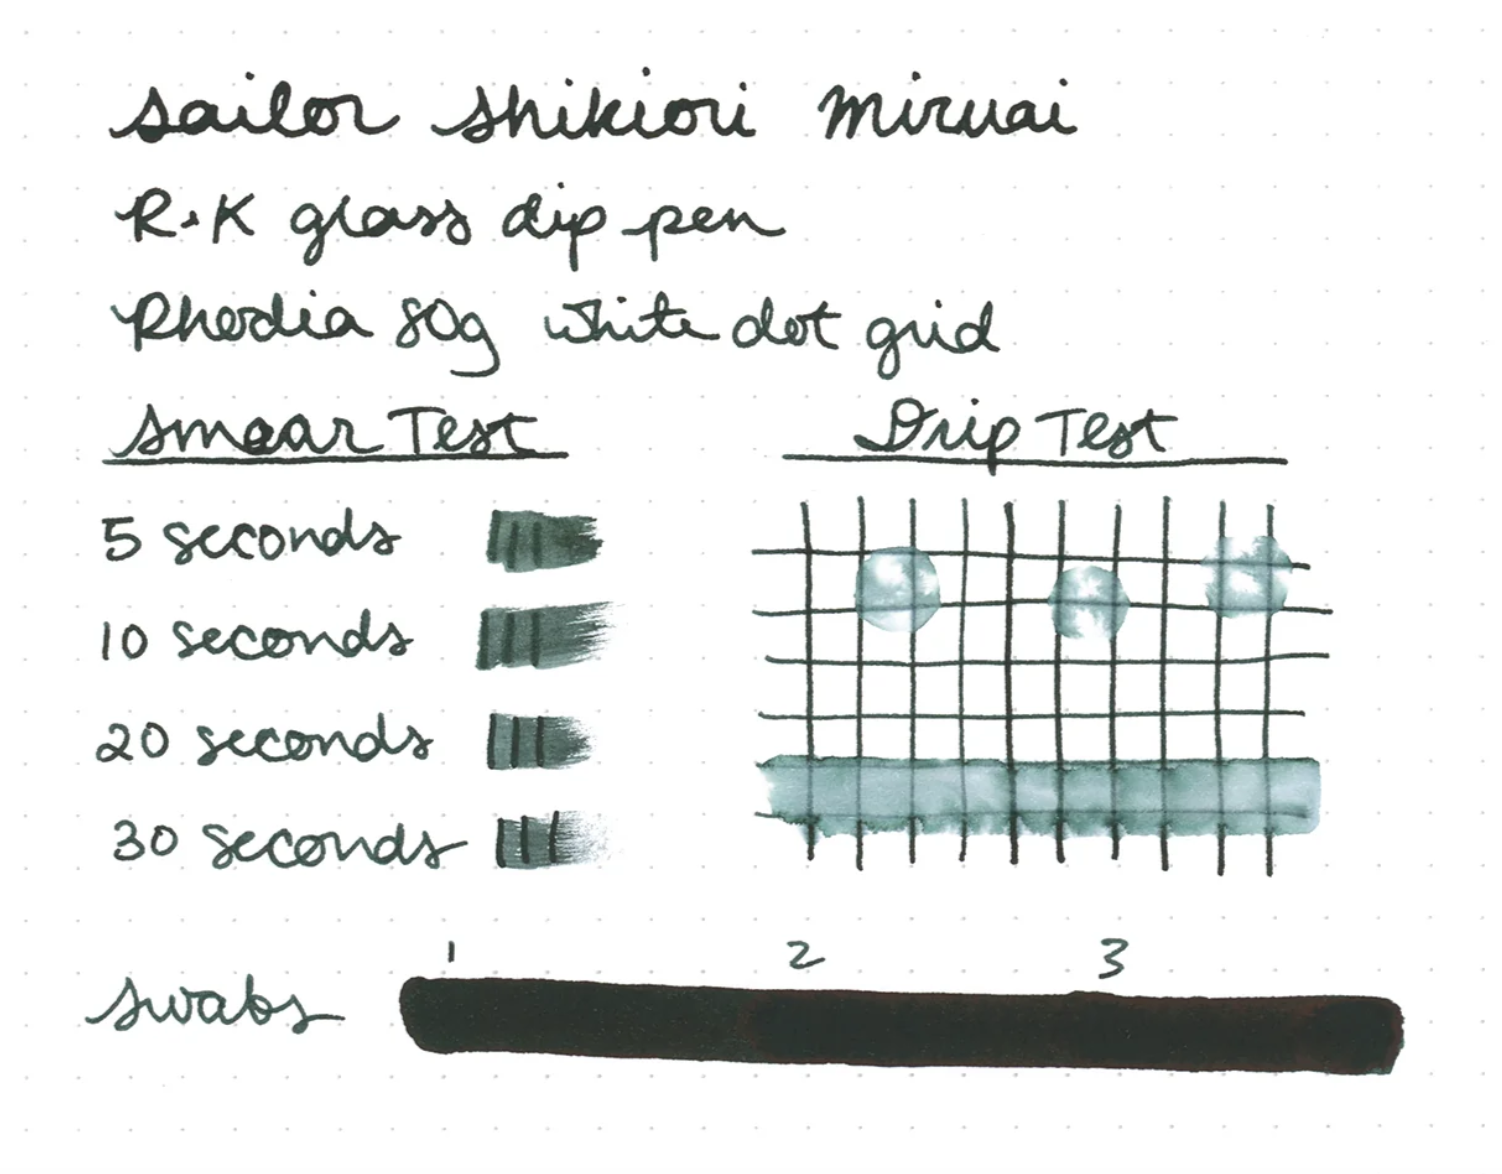 sailor shikiori miruai
R+K glass dip pen
Rhodia 80g white dot grid
Smear Test
Drip Test
5 seconds
10 seconds
20 seconds
30 seconds
1 2 3
swabs